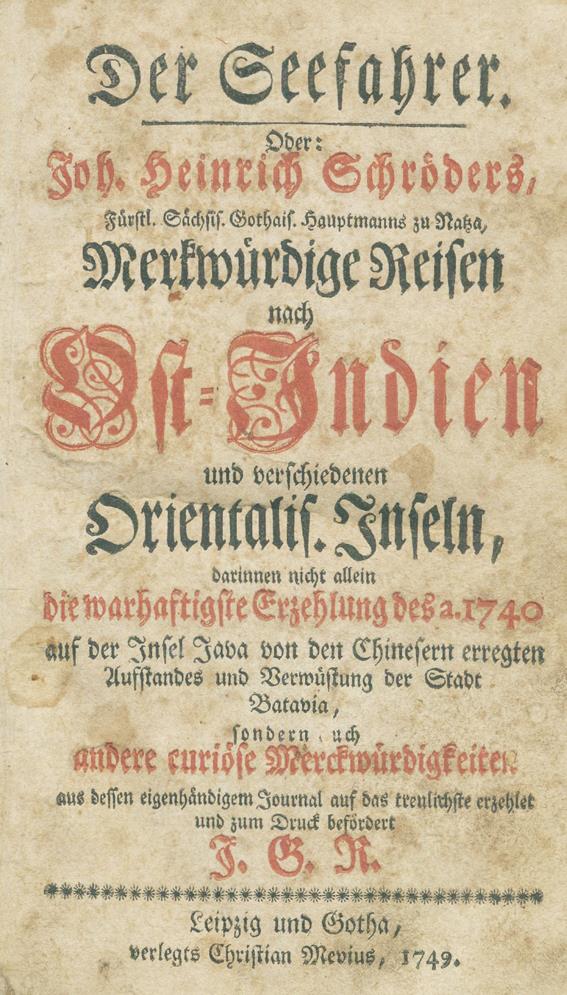 Der Seefahrer.
Oder:
Joh. Heinrich Schröders,
Fürstl. Sächsis. Gothais. Hauptmanns zu Natza,
Merkwürdige Reisen
nach
Ost-Indien
und verschiedenen
Orientalis. Inseln,
darinnen nicht allein
die warhaftigste Erzehlung des a. 1740
auf der Insel Java von den Chinesern erregten
Aufstandes und Verwüstung der Stadt
Batavia,
sondern uch
andere curiöse Merckwürdigkeiten
aus dessen eigenhändigem Journal auf das treulichste erzehlet
und zum Druck befördert
J. G. R.
Leipzig und Gotha,
verlegts Christian Mevius, 1749.